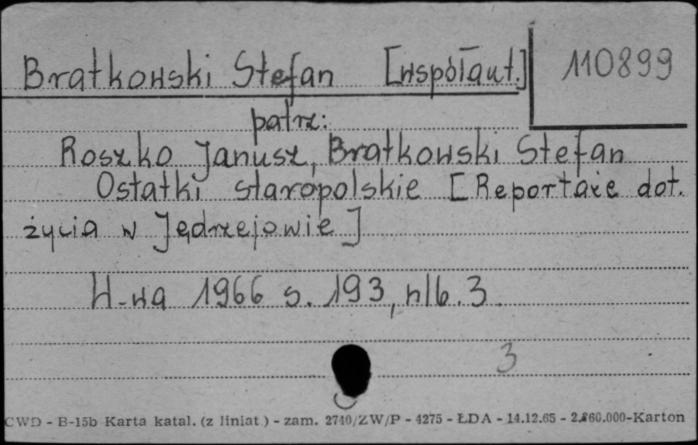 Bratkowski Stefan [współaut.] 110899
patrz:
Roszko Janusz, Bratkowski Stefan
Ostatki staropolskie [Reportaże dot.
życia w Jędrzejowie]
W-wa 1966 s. 193, nlb. 3.
3
CWD - B-15b Karta katal. (z liniat.) - zam. 2740/ZW/P - 4275 - ŁDA - 14.12.65 - 2.860.000-Karton